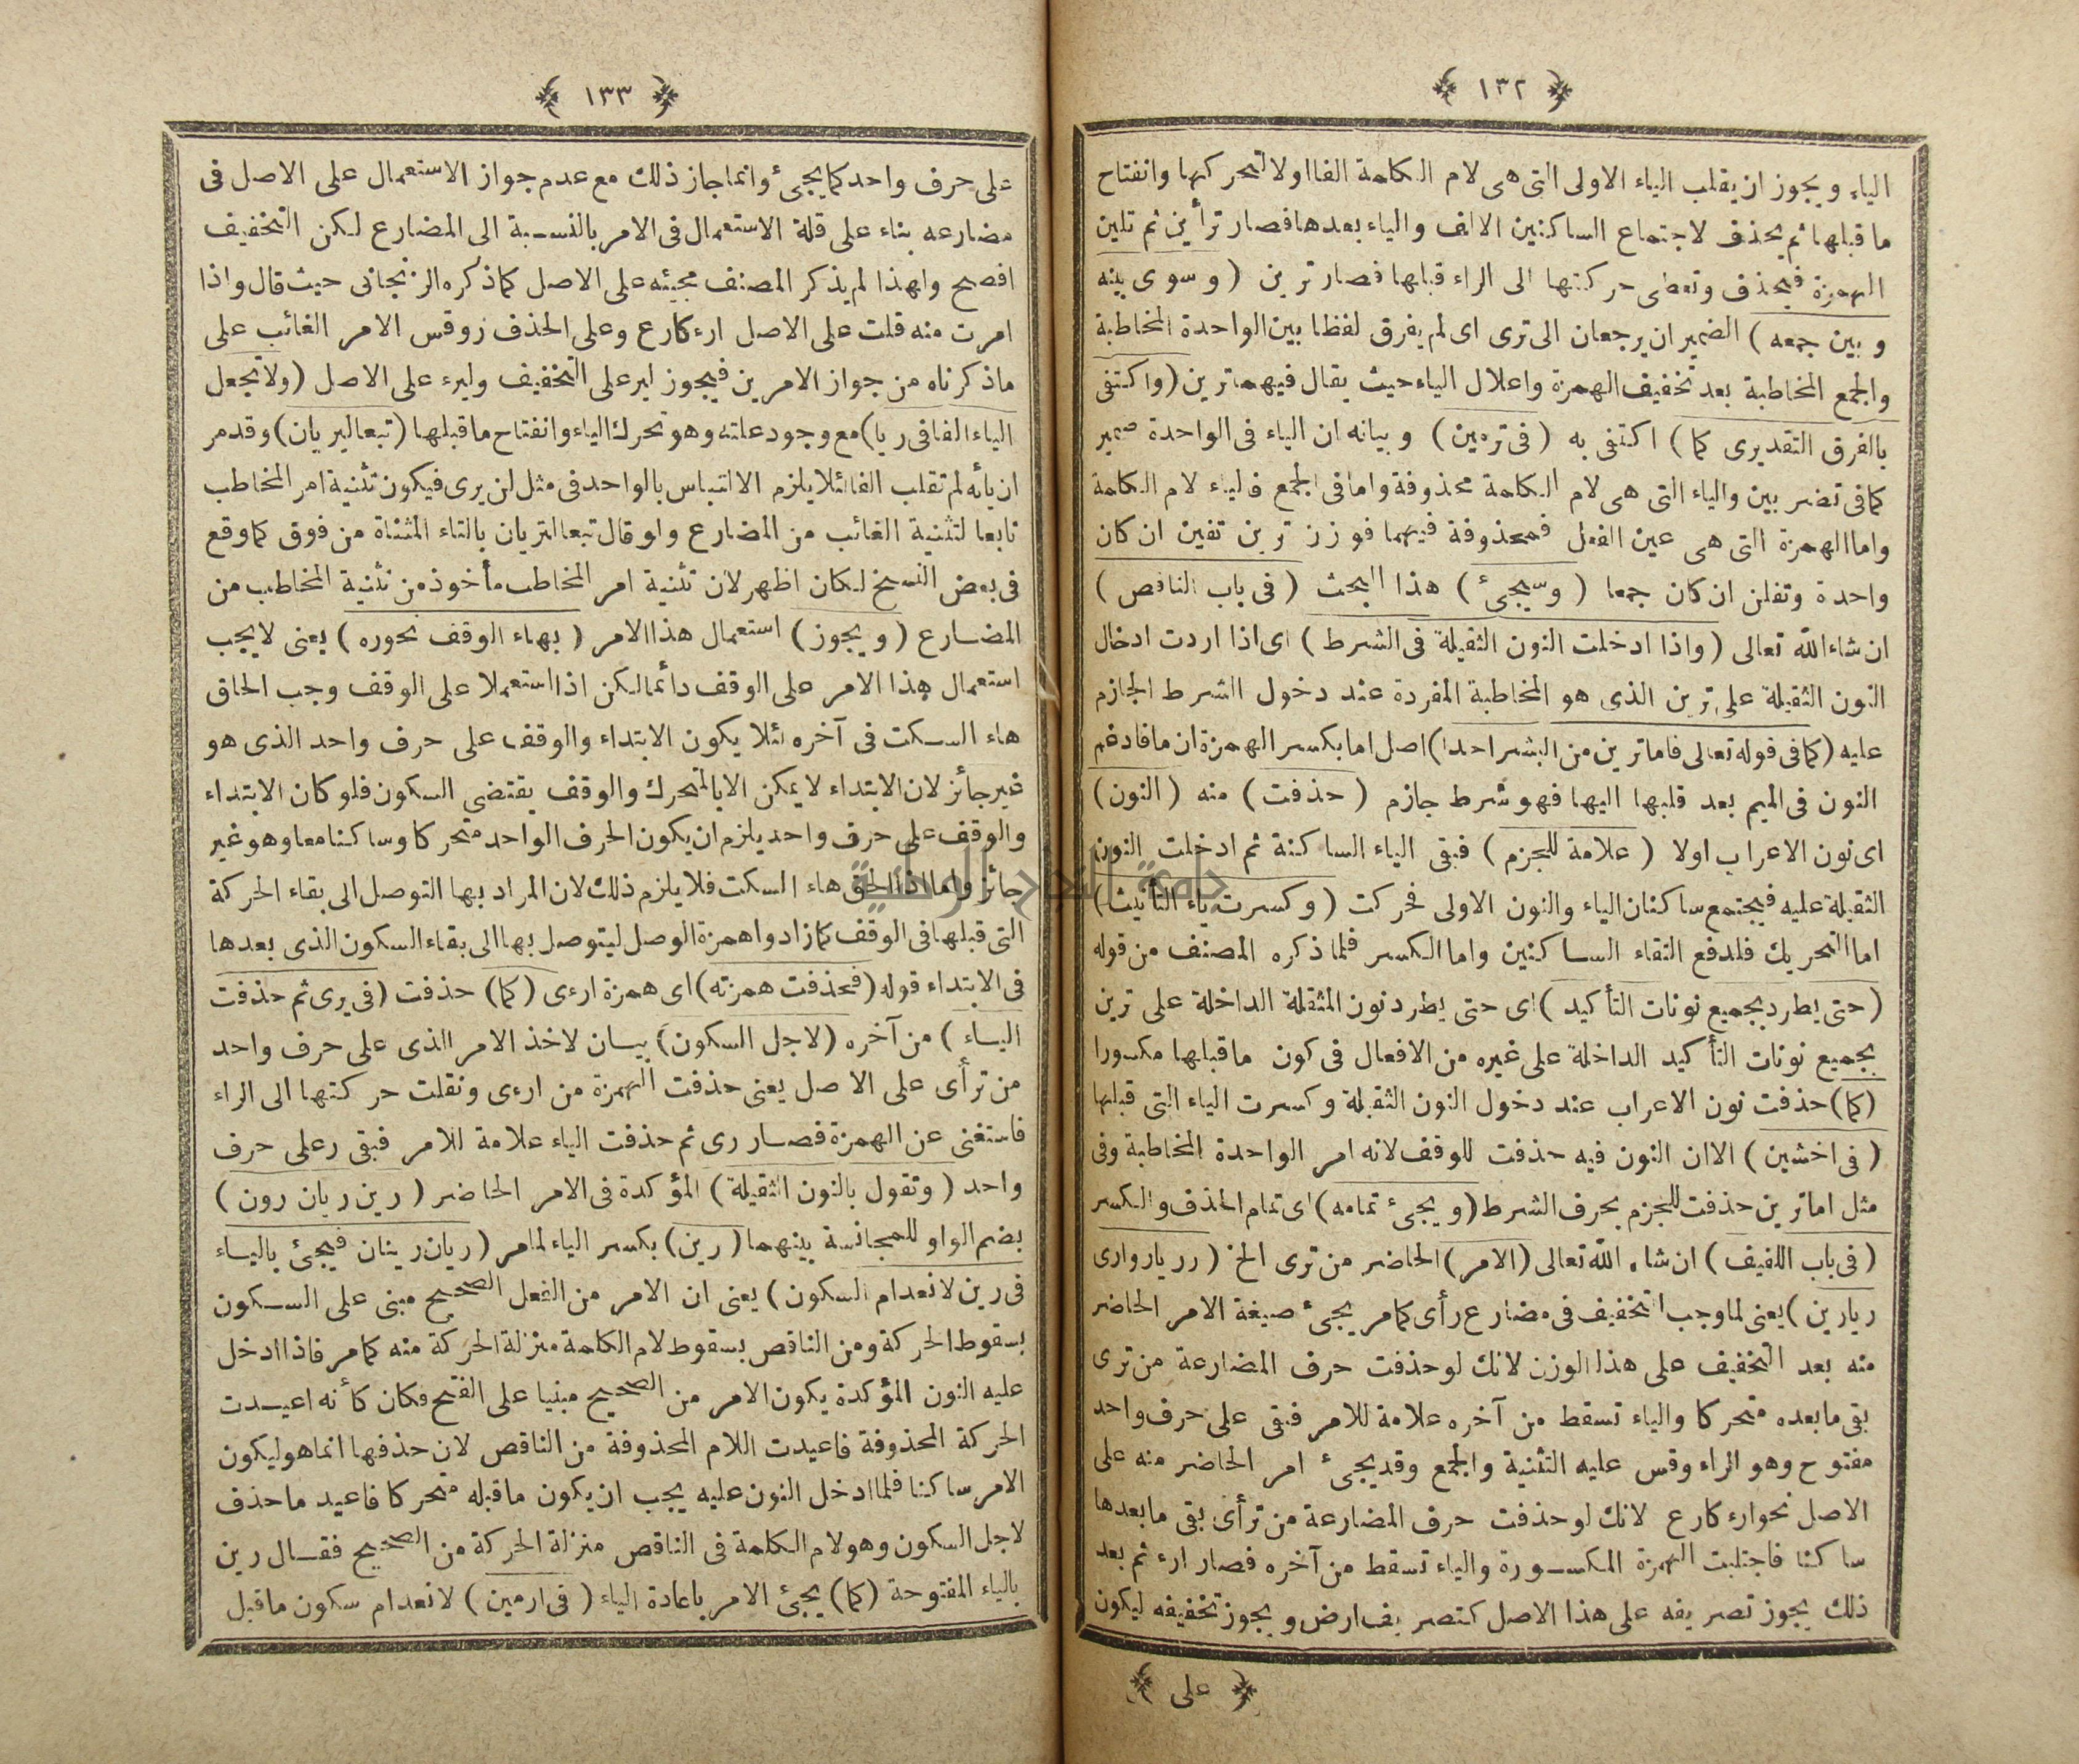 ﴿ ١٣٢ ﴾
الياء ويجوز ان يقلب الياء الاولى التى هى لام الكلمة الفا اولا لتحركها وانفتاح
ما قبلها ثم يحذف لاجتماع الساكنين الالف والياء بعدها فصار ترأين ثم تلين
الهمزة فيحذف وتعطى حركتها الى الراء قبلها فصار ترين (وسوى بينه
وبين جمعه) الضمير ان يرجعان الى ترى اى لم يفرق لفظا بين الواحدة المخاطبة
والجمع المخاطبة بعد تخفيف الهمزة واعلال الياء حيث يقال فيهما ترين (واكتفى
بالفرق التقديرى كما) اكتفى به (فى ترمين) وبيانه ان الياء فى الواحدة ضمير
كما فى تضربين والياء التى هى لام الكلمة محذوفة واما فى الجمع فالياء لام الكلمة
واما الهمزة التى هى عين الفعل فمحذوفة فيهما فوزن ترين تفين ان كان
واحدة وتفلن ان كان جمعا (وسيجئ) هذا البحث (فى باب الناقص)
ان شاء الله تعالى (واذا ادخلت النون الثقيلة فى الشرط) اى اذا اردت ادخال
النون الثقيلة على ترين الذى هو المخاطبة المفردة عند دخول الشرط الجازم
عليه (كما فى قوله تعالى فاما ترين من البشر احدا) اصل اما بكسر الهمزة ان ما فادغم
النون فى الميم بعد قلبها اليها فهو شرط جازم (حذفت) منه (النون)
اى نون الاعراب اولا (علامة للجزم) فبقى الياء الساكنة ثم ادخلت النون
الثقيلة عليه فيجتمع ساكنان الياء والنون الاولى فحركت (وكسرت ياء التأنيث)
اما التحريك فلدفع التقاء الساكنين واما الكسر فلما ذكره المصنف من قوله
(حتى يطرد بجميع نونات التأكيد) اى حتى يطرد نون المثقلة الداخلة على ترين
بجميع نونات التأكيد الداخلة على غيره من الافعال فى كون ما قبلها مكسورا
(كما) حذفت نون الاعراب عند دخول النون الثقيلة وكسرت الياء التى قبلها
(فى اخشين) الا ان النون فيه حذفت للوقف لانه امر الواحدة المخاطبة وفى
مثل اما ترين حذفت للجزم بحرف الشرط (ويجئ تمامه) اى تمام الحذف والكسر
(فى باب اللفيف) ان شاء الله تعالى (الامر) الحاضر من ترى الخ (ر ريا روا رى
ريا رين) يعنى لما وجب التخفيف فى مضارع رأى كما مر يجئ صيغة الامر الحاضر
منه بعد التخفيف على هذا الوزن لانك لو حذفت حرف المضارعة من ترى
بقى ما بعده متحركا والياء تسقط من آخره علامة للامر فبقى على حرف واحد
مفتوح وهو الراء وقس عليه التثنية والجمع وقد يجئ امر الحاضر منه على
الاصل نحو ارء كارع لانك لو حذفت حرف المضارعة من ترأى بقى ما بعدها
ساكنا فاجتلبت الهمزة المكسورة والياء تسقط من آخره فصار ارء ثم بعد
ذلك يجوز تصريفه على هذا الاصل كتصريف ارض ويجوز تخفيفه ليكون
﴿ على ﴾
﴿ ١٣٣ ﴾
على حرف واحد كما يجئ وانما جاز ذلك مع عدم جواز الاستعمال على الاصل فى
مضارعه بناء على قلة الاستعمال فى الامر بالنسبة الى المضارع لكن التخفيف
افصح ولهذا لم يذكر المصنف مجيئه على الاصل كما ذكره الزنجانى حيث قال واذا
امرت منه قلت على الاصل ارء كارع وعلى الحذف ر وقس الامر الغائب على
ما ذكرناه من جواز الامرين فيجوز لير على التخفيف وليرء على الاصل (ولا تجعل
الياء الفا فى ريا) مع وجود علته وهو تحرك الياء وانفتاح ما قبلها (تبعا ليريان) وقد مر
ان يأه لم تقلب الفا لئلا يلزم الالتباس بالواحد فى مثل لن يرى فيكون تثنية امر المخاطب
تابعا لتثنية الغائب من المضارع ولو قال تبعا لتريان بالتاء المثناة من فوق كما وقع
فى بعض النسخ لكان اظهر لان تثنية امر المخاطب مأخوذ من تثنية المخاطب من
المضارع (ويجوز) استعمال هذا الامر (بهاء الوقف نحو ره) يعنى لا يجب
استعمال هذا الامر على الوقف دائما لكن اذا استعملا على الوقف وجب الحاق
هاء السكت فى آخره لئلا يكون الابتداء والوقف على حرف واحد الذى هو
غير جائز لان الابتداء لا يمكن الا بالمتحرك والوقف يقتضى السكون فلو كان الابتداء
والوقف على حرف واحد يلزم ان يكون الحرف الواحد متحركا وساكنا معا وهو غير
جائز واما اذا الحق هاء السكت فلا يلزم ذلك لان المراد بها التوصل الى بقاء الحركة
التى قبلها فى الوقف كما زادوا همزة الوصل ليتوصل بها الى بقاء السكون الذى بعدها
فى الابتداء قوله (فحذفت همزته) اى همزة ارءى (كما) حذفت (فى يرى ثم حذفت
الياء) من آخره (لاجل السكون) بيان لاخذ الامر الذى على حرف واحد
من ترأى على الاصل يعنى حذفت الهمزة من ارءى ونقلت حركتها الى الراء
فاستغنى عن الهمزة فصار رى ثم حذفت الياء علامة للامر فبقى ر على حرف
واحد (وتقول بالنون الثقيلة) المؤكدة فى الامر الحاضر (رين ريان رون)
بضم الواو للمجانسة بينهما (رين) بكسر الياء لما مر (ريان رينان فيجئ بالياء
فى رين لانعدام السكون) يعنى ان الامر من الفعل الصحيح مبنى على السكون
بسقوط الحركة ومن الناقص بسقوط لام الكلمة منزلة الحركة منه كما مر فاذا ادخل
عليه النون المؤكدة يكون الامر من الصحيح مبنيا على الفتح فكان كأنه اعيدت
الحركة المحذوفة فاعيدت اللام المحذوفة من الناقص لان حذفها انما هو ليكون
الامر ساكنا فلما ادخل النون عليه يجب ان يكون ما قبله متحركا فاعيد ما حذف
لاجل السكون وهو لام الكلمة فى الناقص منزلة الحركة من الصحيح فقال رين
بالياء المفتوحة (كما) يجئ الامر باعادة الياء (فى ارمين) لانعدام سكون ما قبل